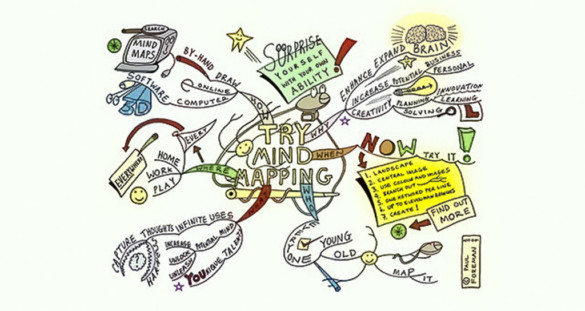 TRY
MIND
MAPPING
SEARCH
MIND
MAPS
SOFTWARE
3D
BY-HAND
DRAW
ONLINE
COMPUTER
HOW
SURPRISE
YOURSELF
WITH YOUR OWN
ABILITY!
WHY
ENHANCE EXPAND BRAIN
INCREASE POTENTIAL BUSINESS
PERSONAL
CREATIVITY
PLANNING
INNOVATION
LEARNING
SOLVING
L
WHEN
NOW
TRY IT!
1. LANDSCAPE
2. CENTRAL IMAGE
3. USE COLOUR AND IMAGES
4. BRANCH OUT
5. ONE KEYWORD PER LINE
7. CREATE!
FIND OUT
MORE
© PAUL
FOREMAN
WHO
ONE
YOUNG
OLD
MAP IT
CAPTURE THOUGHTS INFINITE USES
INCREASE POTENTIAL MIND
UNLOCK
UNLEASH
YOUNIQUE TALENT
WHERE
EVERY
HOME
WORK
PLAY
EVERYWHERE